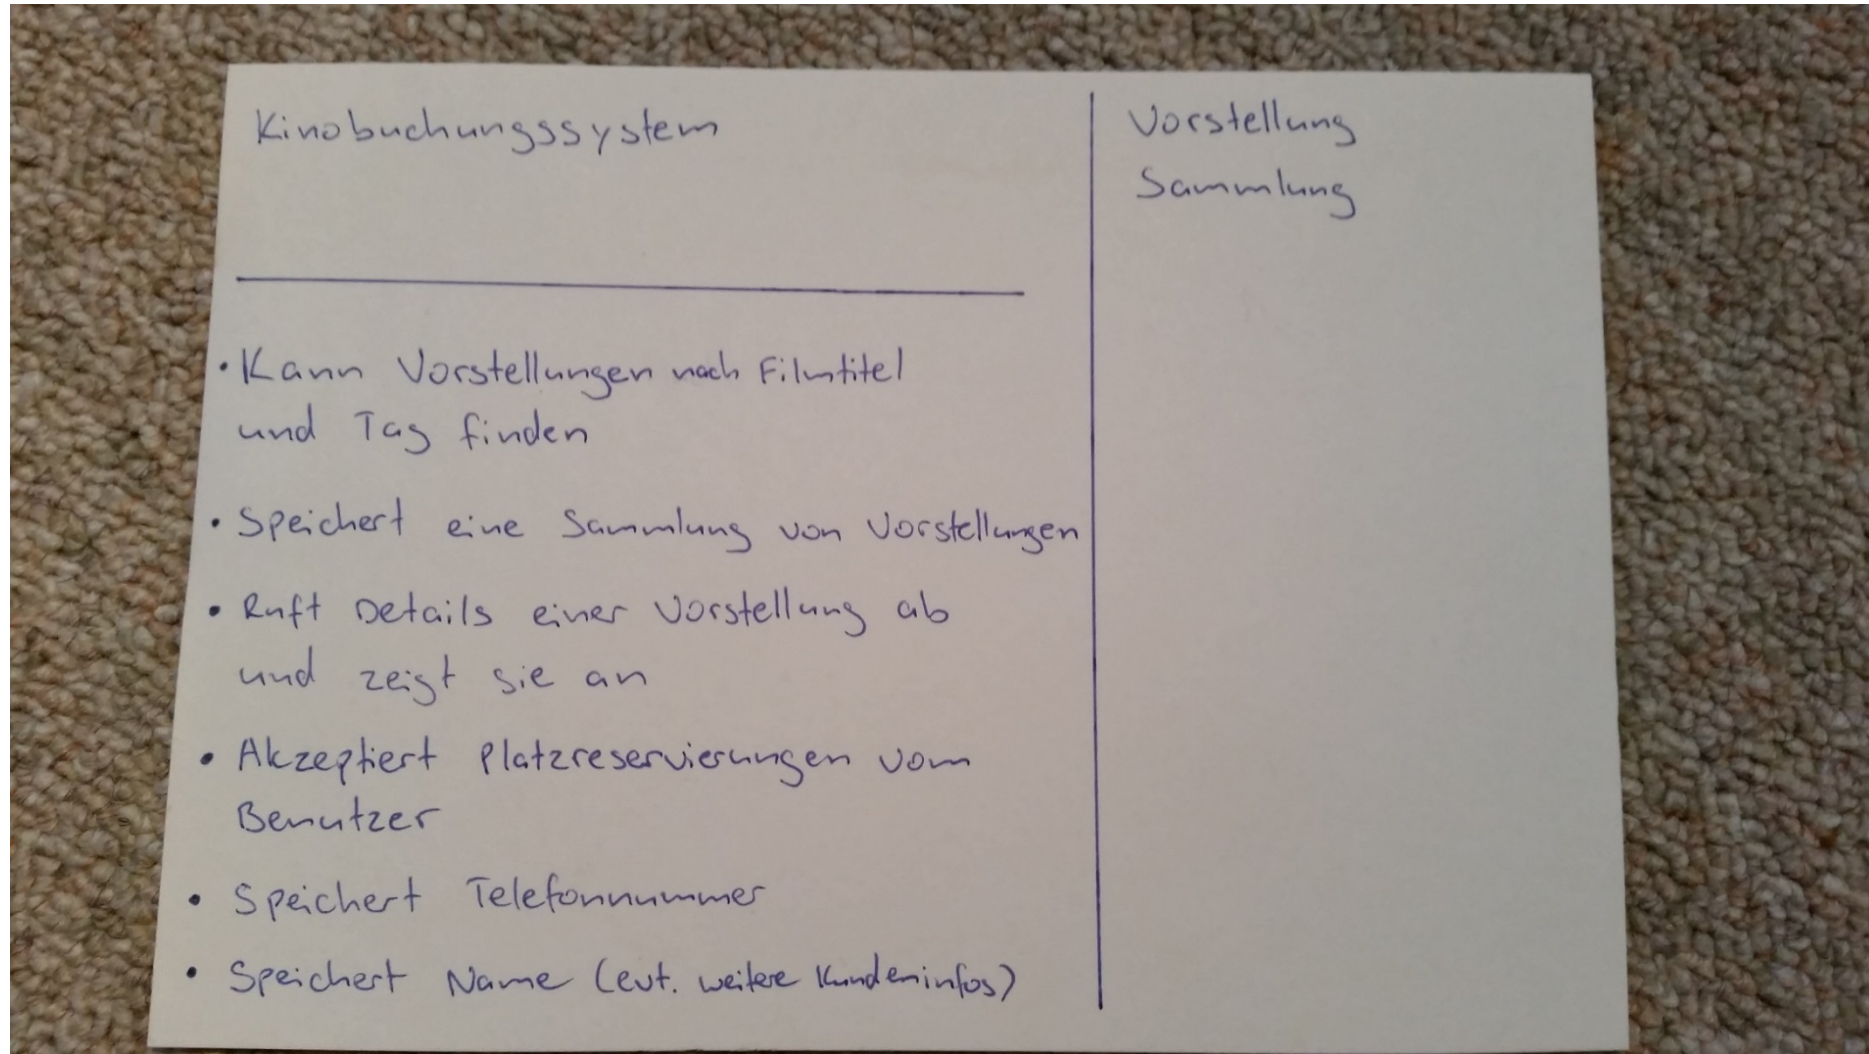 Kinobuchungssystem
• Kann Vorstellungen nach Filmtitel
und Tag finden
• Speichert eine Sammlung von Vorstellungen
• Ruft Details einer Vorstellung ab
und zeigt sie an
• Akzeptiert Platzreservierungen vom
Benutzer
• Speichert Telefonnummer
• Speichert Name (evt. weitere Kundeninfos)
Vorstellung
Sammlung